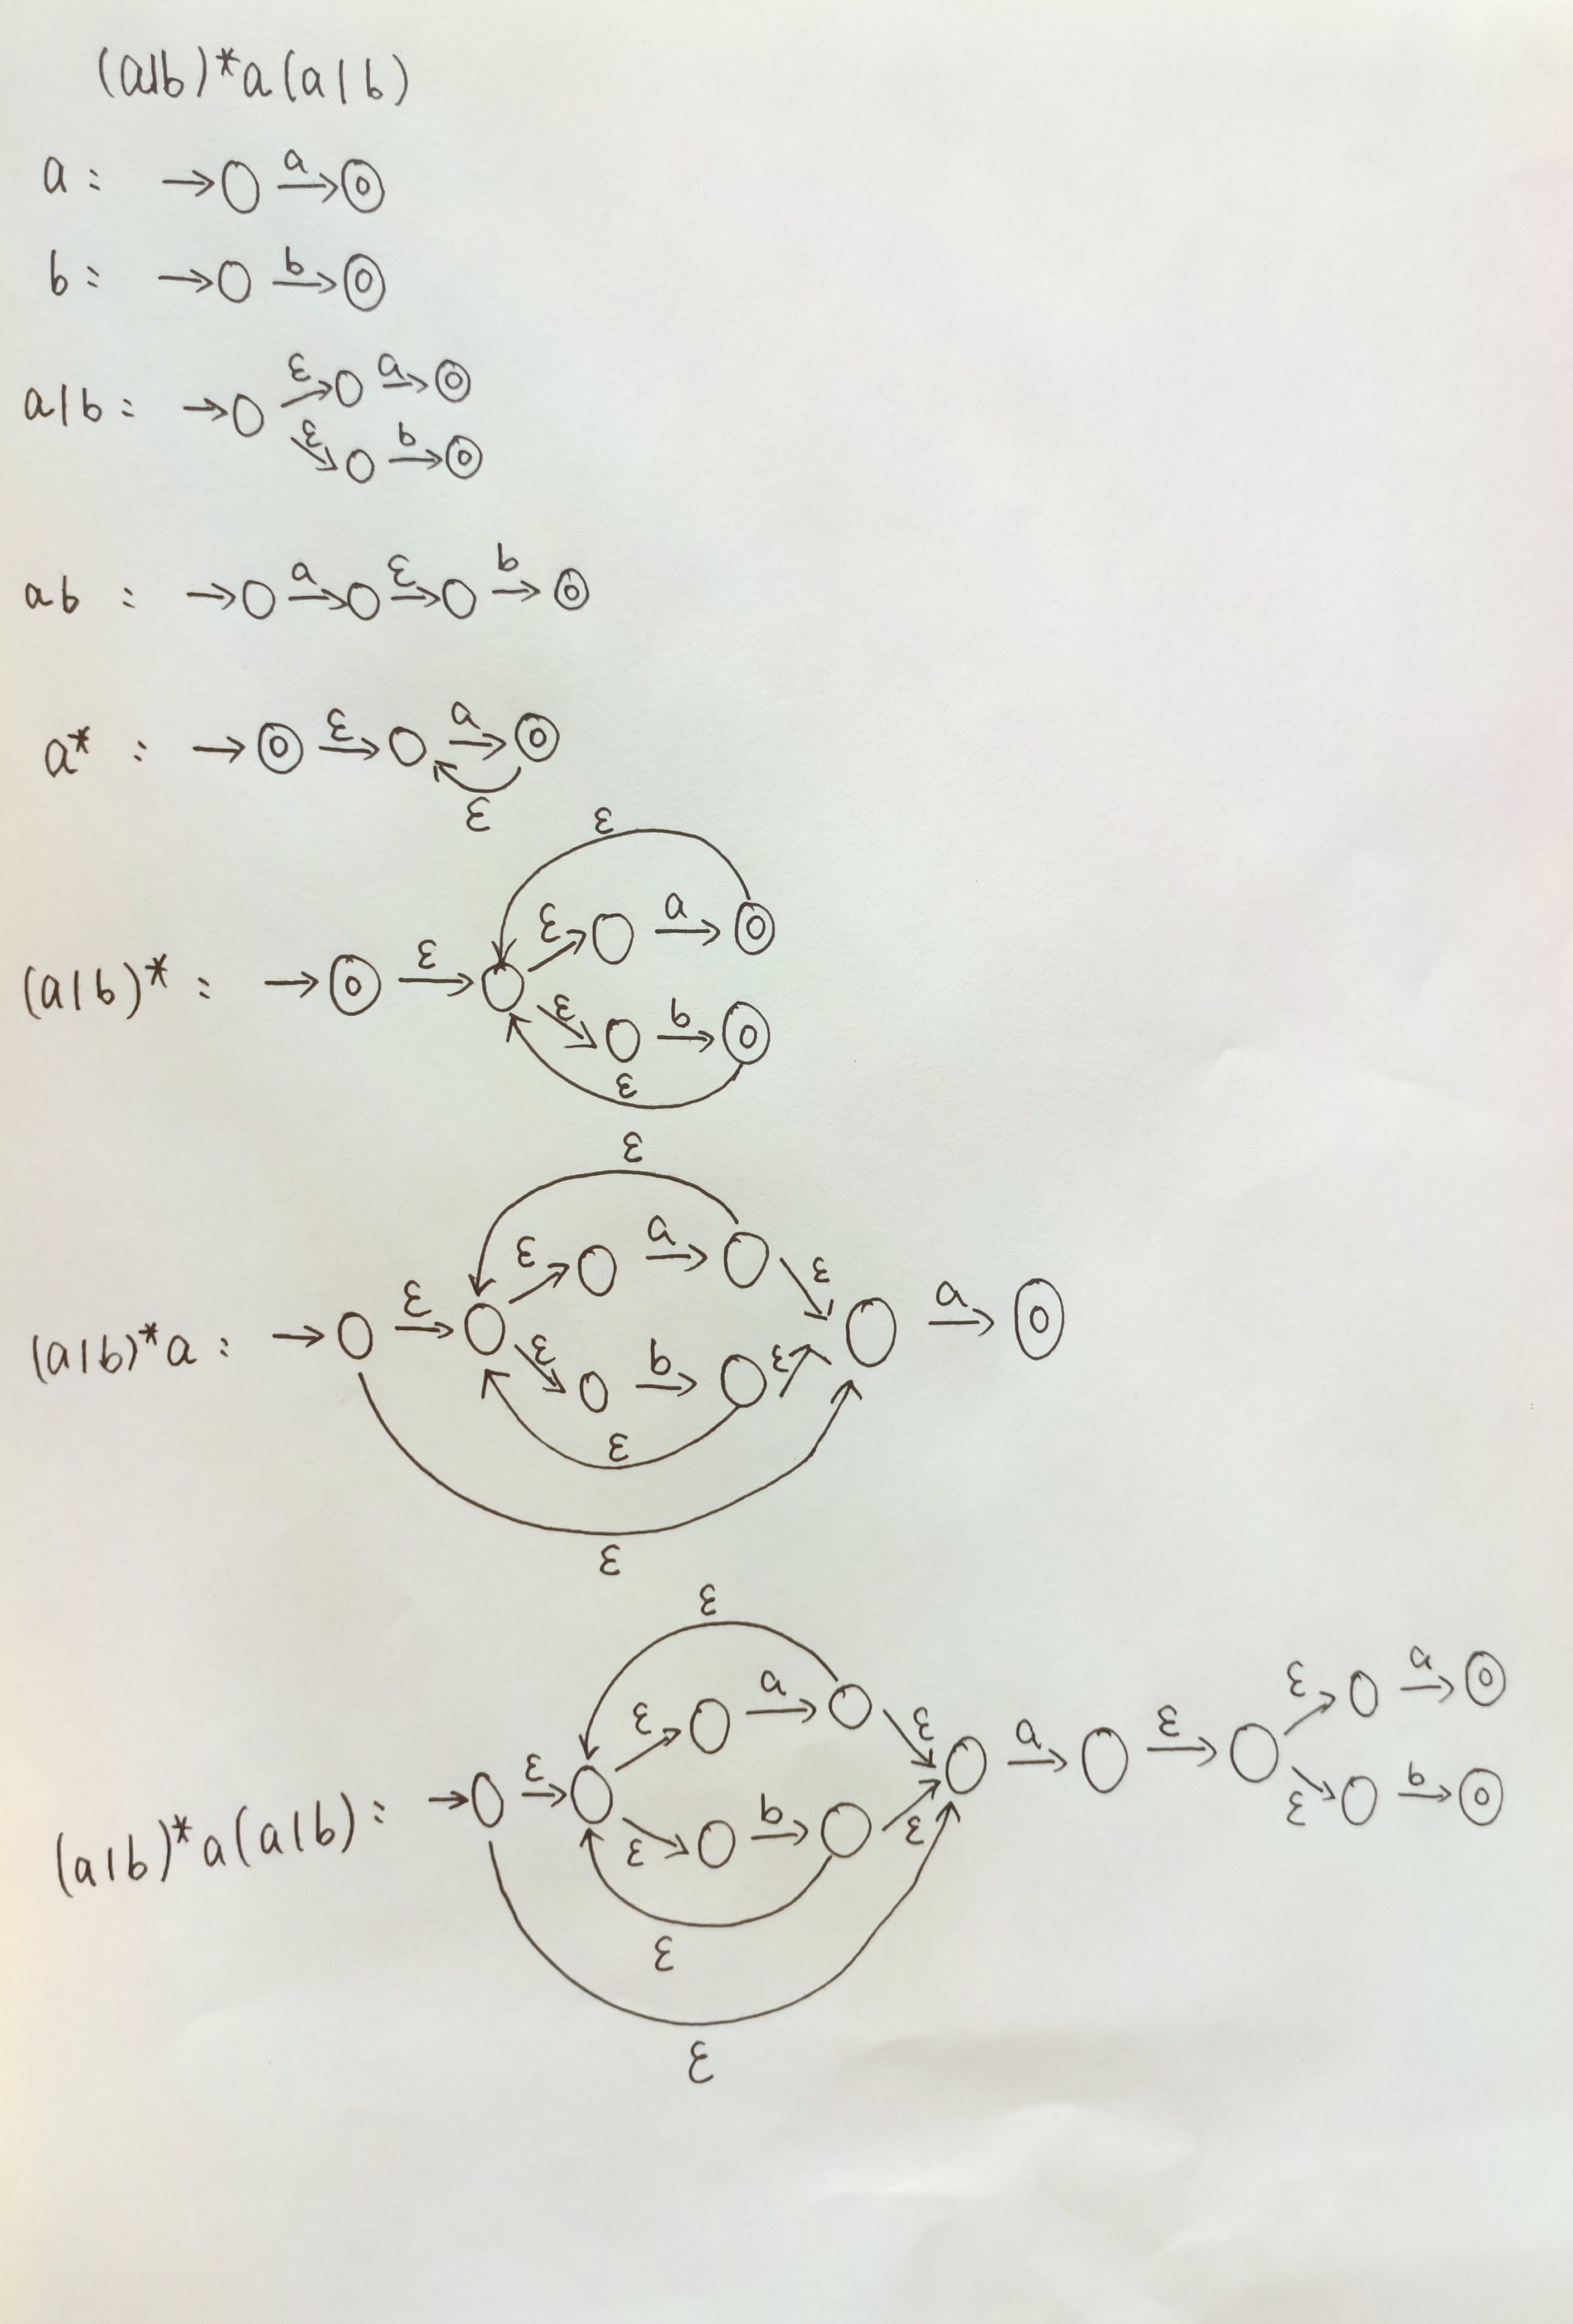 (a|b)*a(a|b)
a: a
b: b
a|b: ε a
ε b
ab: a ε b
a*: ε a
ε
ε
ε a
(a|b)*: ε
ε b
ε
ε
ε a ε
(a|b)*a: ε a
ε b ε
ε
ε
ε
ε a ε a ε ε a
(a|b)*a(a|b): ε
ε b ε ε b
ε
ε